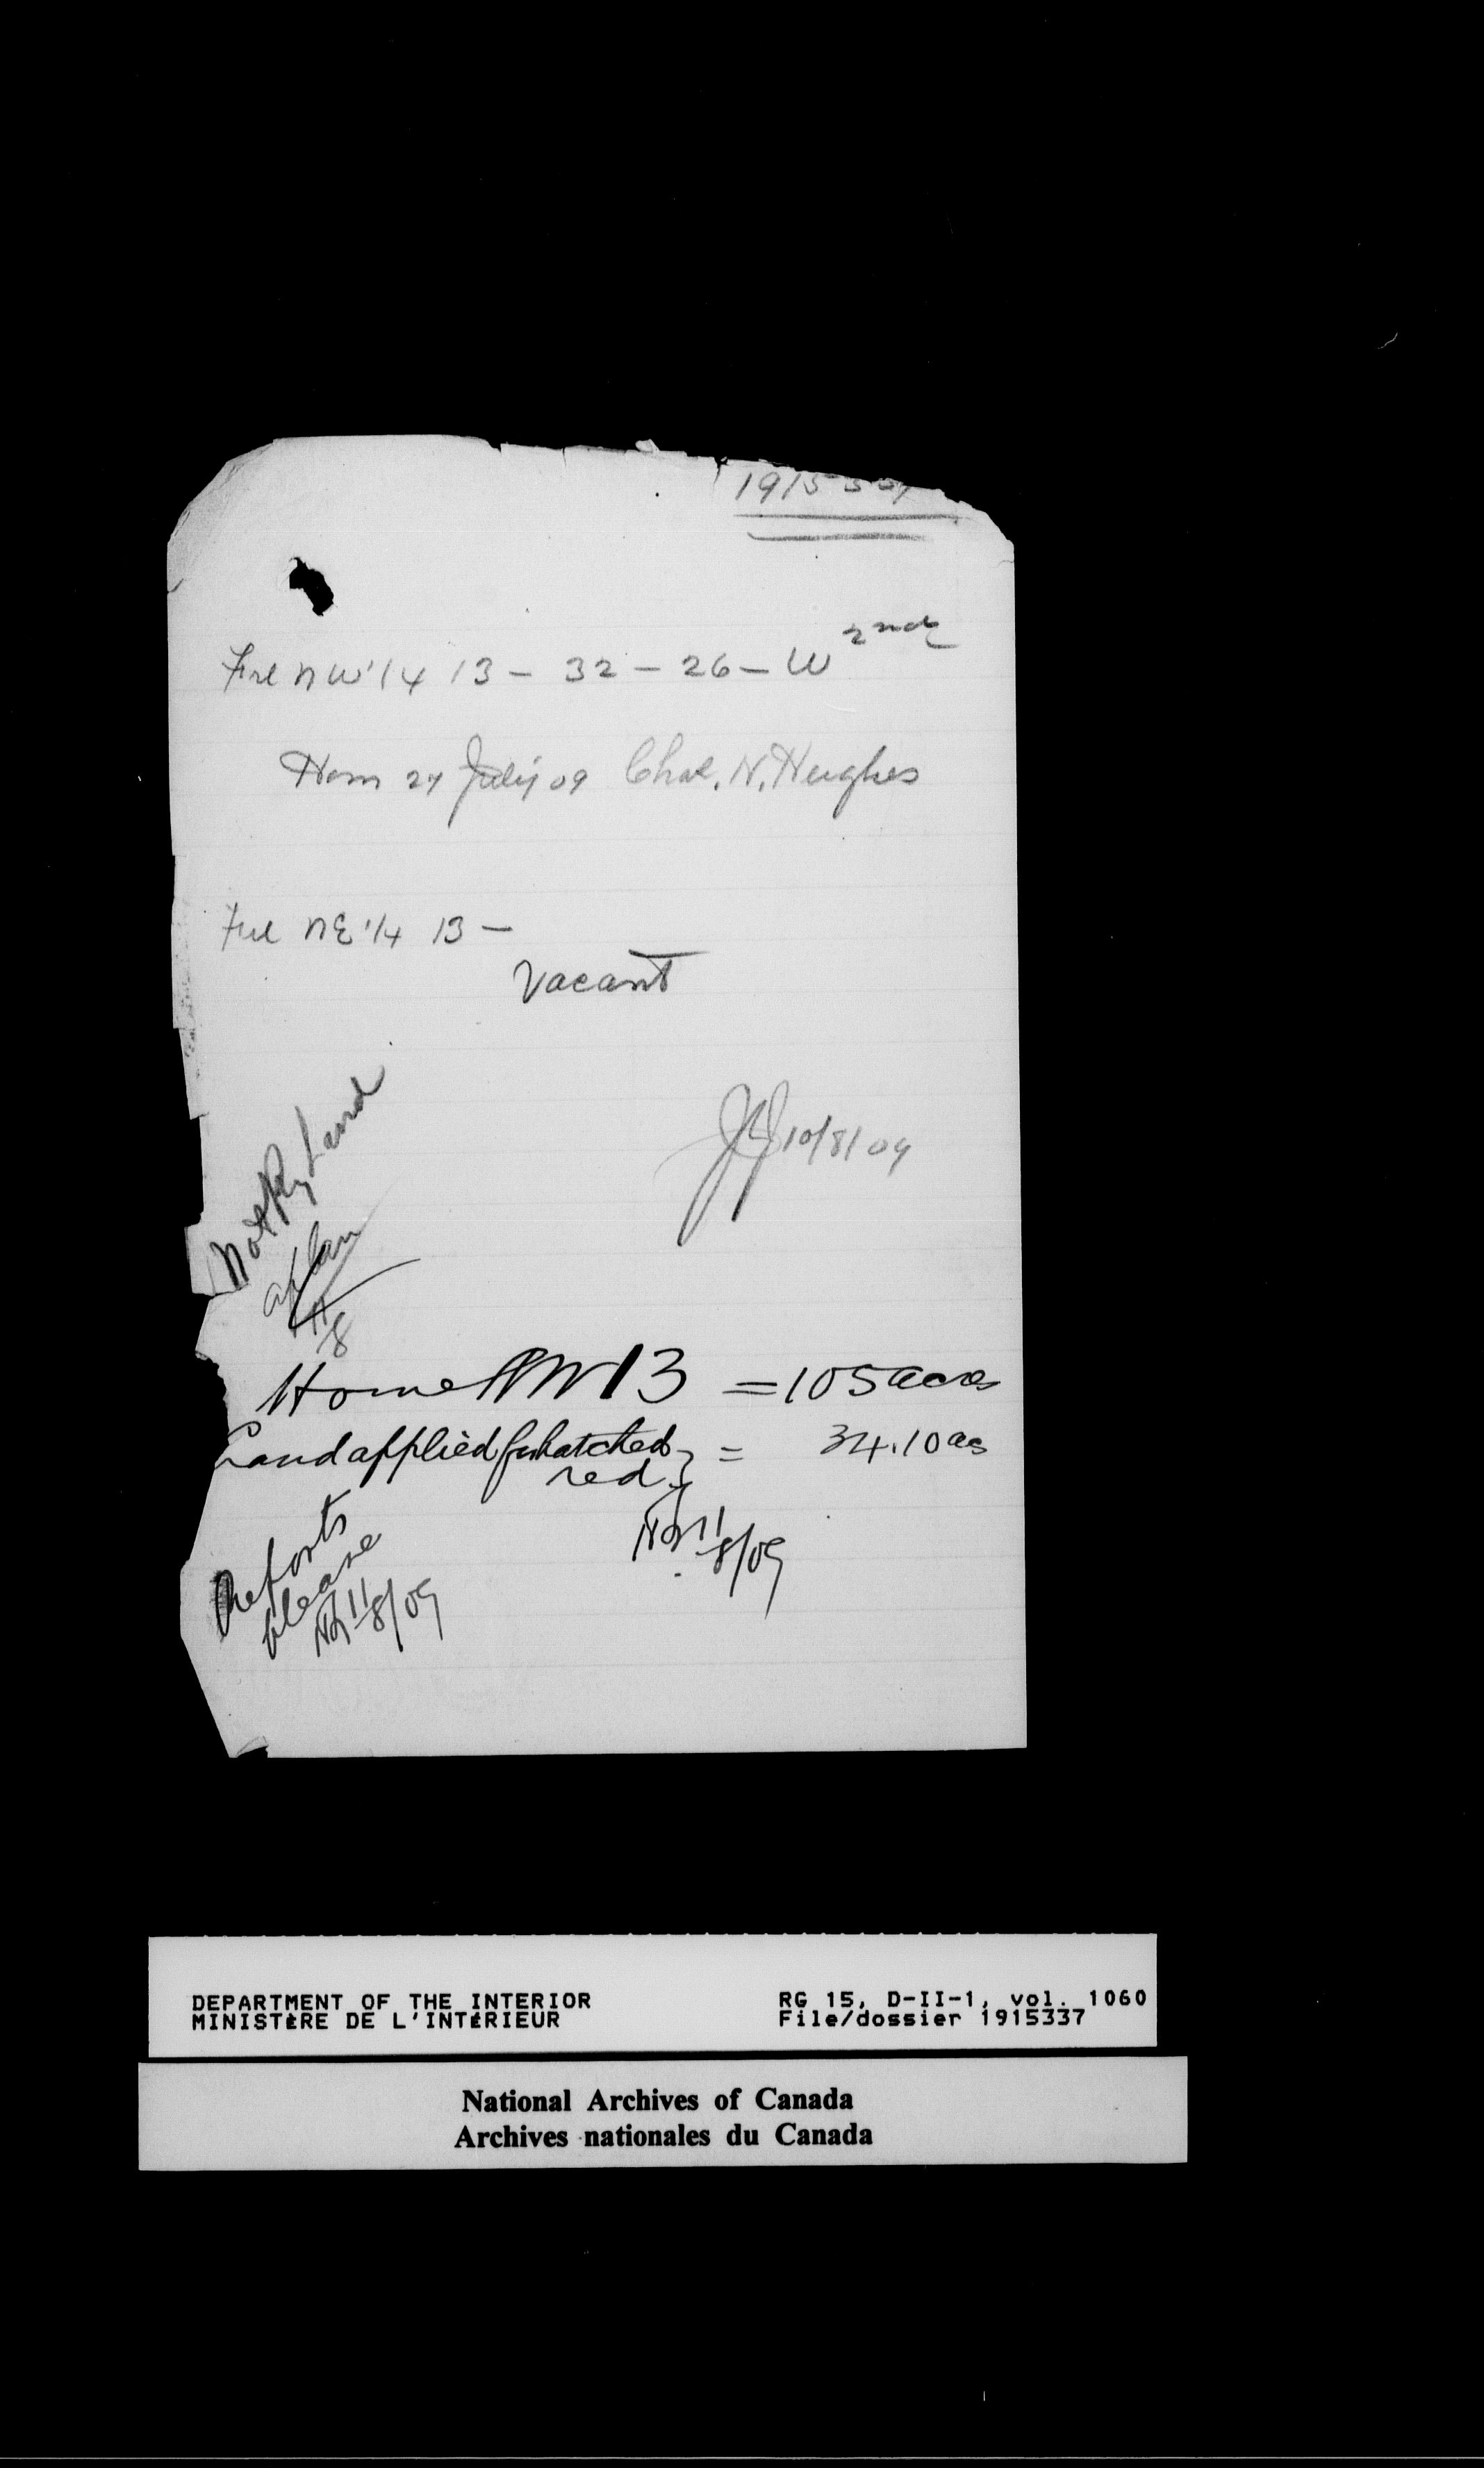 1915337
Frl NW 1/4 13 – 32 – 26 – W 2nd
Hom 27 July 09 Chas. N. Hughes
Frl NE 1/4 13 –
Vacant
10/8/09
Not Ry Land
11/8
Home NW 13 = 105 acres
Land applied for hatched } = 34.10 as
red
11/8/09
Reports
please
11/8/09
DEPARTMENT OF THE INTERIOR
MINISTÈRE DE L'INTÉRIEUR
RG 15, D-II-1, vol. 1060
File/dossier 1915337
National Archives of Canada
Archives nationales du Canada